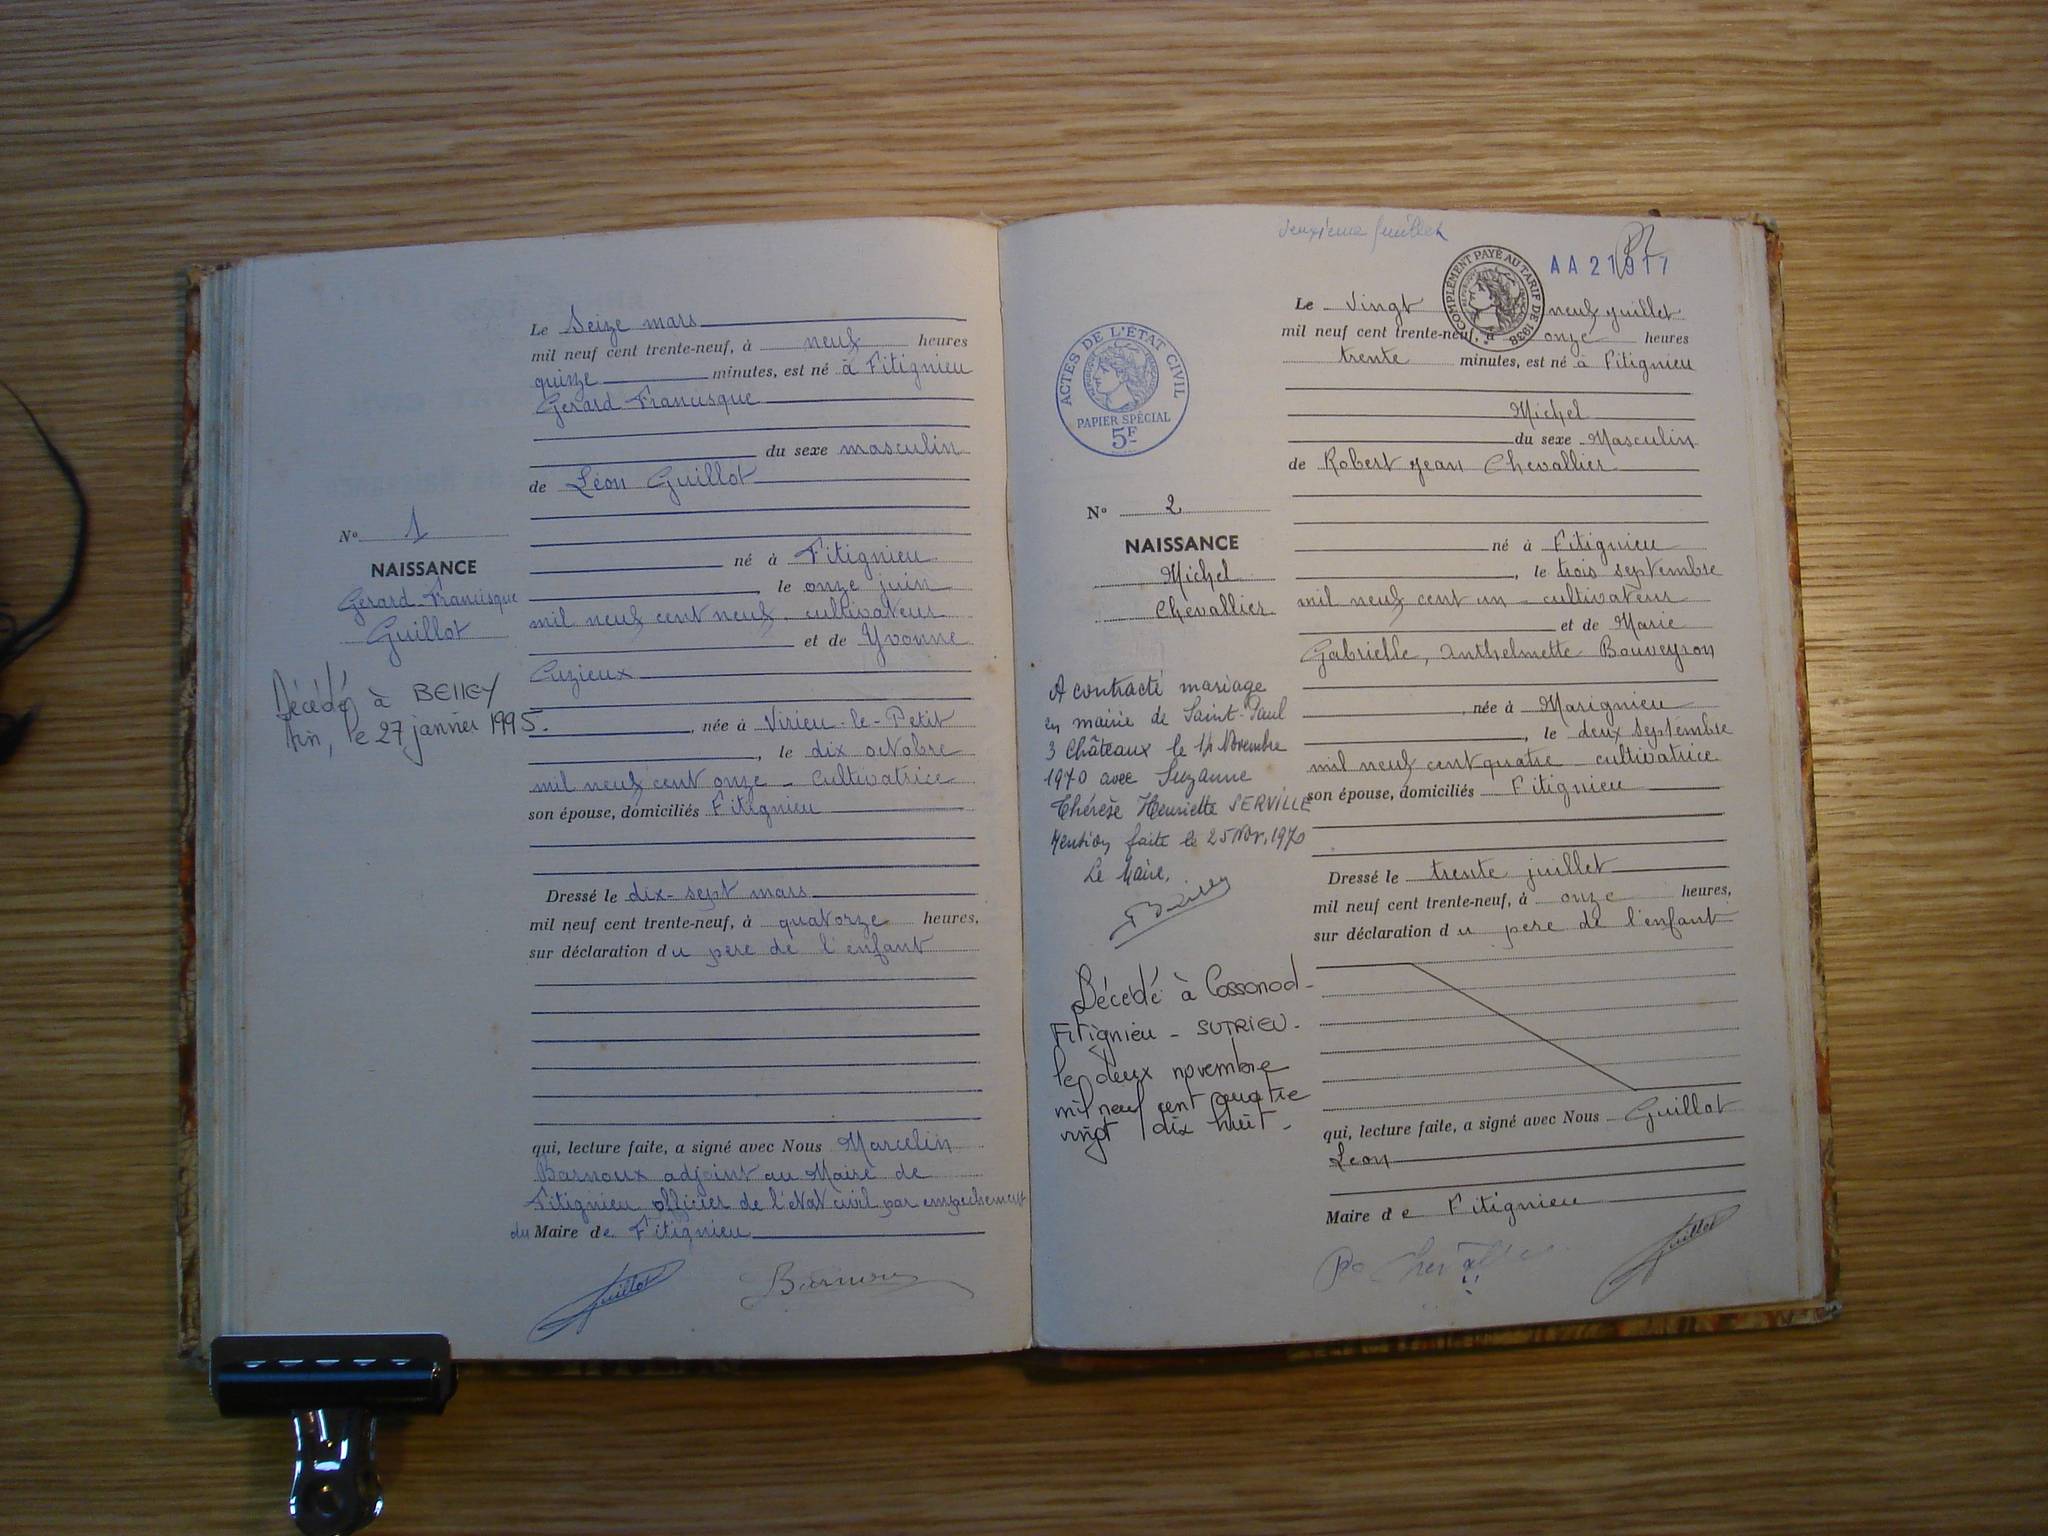 Le Seize mars
mil neuf cent trente-neuf, à neuf heures
quinze minutes, est né à Fitignieu
Gerard Francisque
du sexe masculin
de Léon Guillot
né à Fitignieu
, le onze juin
mil neuf cent neuf, cultivateur
et de Yvonne
Cuzieux
, née à Virieu-le-Petit
, le dix octobre
mil neuf cent onze - cultivatrice
son épouse, domiciliés Fitignieu
Dressé le dix-sept mars
mil neuf cent trente-neuf, à quatorze heures,
sur déclaration du pere de l'enfant
qui, lecture faite, a signé avec Nous Marcelin
Barnoux adjoint au Maire de
Fitignieu officier de l'état civil par empechement
du Maire de Fitignieu
Guillot
Barnoux
N° 1
NAISSANCE
Gerard Francisque
Guillot
Décédé à BELLEY
Ain, le 27 janvier 1995.
deuxieme feuillet
AA 21917
COMPLÉMENT PAYÉ AU TARIF DE 1938
ACTES DE L'ÉTAT CIVIL
PAPIER SPÉCIAL
5F
Le Vingt neuf juillet
mil neuf cent trente-neuf, à onze heures
trente minutes, est né à Fitignieu
Michel
du sexe Masculin
de Robert Jean Chevallier
né à Fitignieu
, le trois septembre
mil neuf cent un - cultivateur
et de Marie
Gabrielle, Anthelmette Bouveyron
, née à Marignieu
, le deux septembre
mil neuf cent quatre cultivatrice
son épouse, domiciliés Fitignieu
Dressé le trente juillet
mil neuf cent trente-neuf, à onze heures,
sur déclaration du pere de l'enfant
qui, lecture faite, a signé avec Nous Guillot
Leon
Maire de Fitignieu
Chevallier
Guillot
N° 2
NAISSANCE
Michel
Chevallier
A contracté mariage
en mairie de Saint-Paul
3 Châteaux le 14 Novembre
1970 avec Suzanne
Thérèse Henriette SERVILLE
Mention faite le 25 Nov. 1970
Le Maire,
Décédé à Cossonod-
Fitignieu - SUTRIEU -
le deux novembre
mil neuf cent quatre
vingt dix huit -